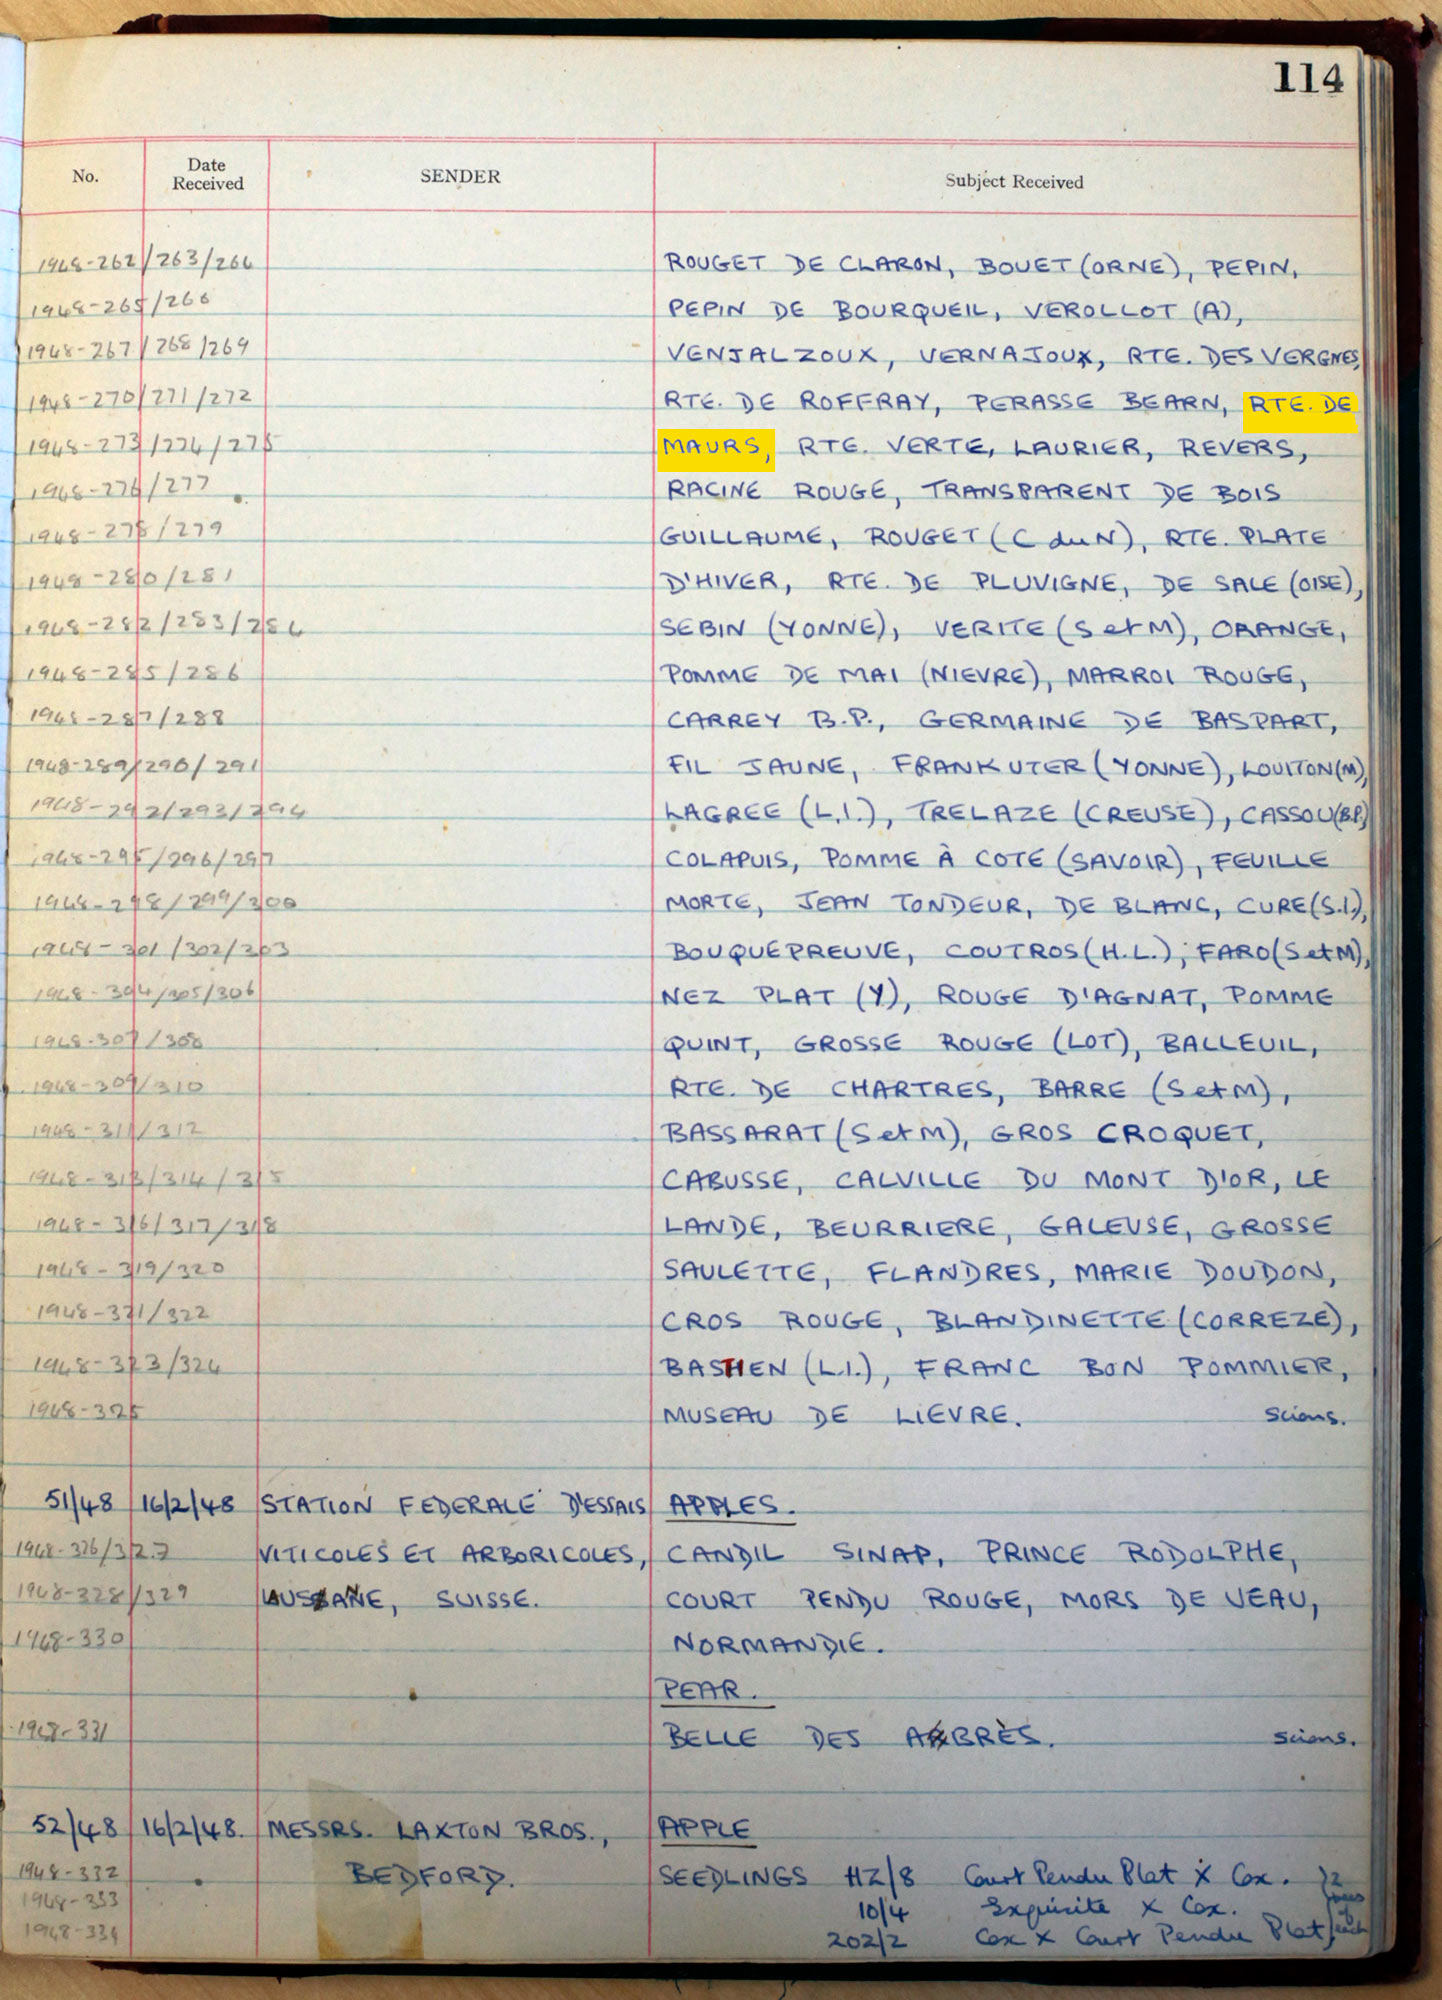 114
No. Date Received SENDER Subject Received
1948-262/263/264 ROUGET DE CLARON, BOUET (ORNE), PEPIN,
1948-265/266 PEPIN DE BOURQUEIL, VEROLLOT (A),
1948-267/268/269 VENJALZOUX, VERNAJOUX, RTE. DES VERGNES,
1948-270/271/272 RTE. DE ROFFRAY, PERASSE BEARN, RTE. DE
1948-273/274/275 MAURS, RTE. VERTE, LAURIER, REVERS,
1948-276/277 RACINE ROUGE, TRANSPARENT DE BOIS
1948-278/279 GUILLAUME, ROUGET (C du N), RTE. PLATE
1948-280/281 D'HIVER, RTE. DE PLUVIGNE, DE SALE (OISE),
1948-282/283/284 SEBIN (YONNE), VERITE (S et M), ORANGE,
1948-285/286 POMME DE MAI (NIEVRE), MARROI ROUGE,
1948-287/288 CARREY B.P., GERMAINE DE BASPART,
1948-289/290/291 FIL JAUNE, FRANKUTER (YONNE), LOUITON (M),
1948-292/293/294 LAGREE (L.I.), TRELAZE (CREUSE), CASSOU (B.P.)
1948-295/296/297 COLAPUIS, POMME À COTE (SAVOIR), FEUILLE
1948-298/299/300 MORTE, JEAN TONDEUR, DE BLANC, CURE (S.I.),
1948-301/302/303 BOUQUEPREUVE, COUTROS (H.L.), FARO (S et M),
1948-304/305/306 NEZ PLAT (Y), ROUGE D'AGNAT, POMME
1948-307/308 QUINT, GROSSE ROUGE (LOT), BALLEUIL,
1948-309/310 RTE. DE CHARTRES, BARRE (S et M),
1948-311/312 BASSARAT (S et M), GROS CROQUET,
1948-313/314/315 CABUSSE, CALVILLE DU MONT D'OR, LE
1948-316/317/318 LANDE, BEURRIERE, GALEUSE, GROSSE
1948-319/320 SAULETTE, FLANDRES, MARIE DOUDON,
1948-321/322 CROS ROUGE, BLANDINETTE (CORREZE),
1948-323/324 BASTIEN (L.I.), FRANC BON POMMIER,
1948-325 MUSEAU DE LIEVRE. Scions.
51/48 16/2/48 STATION FEDERALE D'ESSAIS APPLES.
1948-326/327 VITICOLES ET ARBORICOLES, CANDIL SINAP, PRINCE RODOLPHE,
1948-328/329 LAUSANNE, SUISSE. COURT PENDU ROUGE, MORS DE VEAU,
1948-330 NORMANDIE.
PEAR.
1948-331 BELLE DES ABRÈS. Scions.
52/48 16/2/48. MESSRS. LAXTON BROS., APPLE
1948-332 BEDFORD. SEEDLINGS HZ/8 Court Pendu Plat X Cox. 2
1948-333 10/4 Exquisite X Cox. trees of
1948-334 202/2 Cox X Court Pendu Plat each